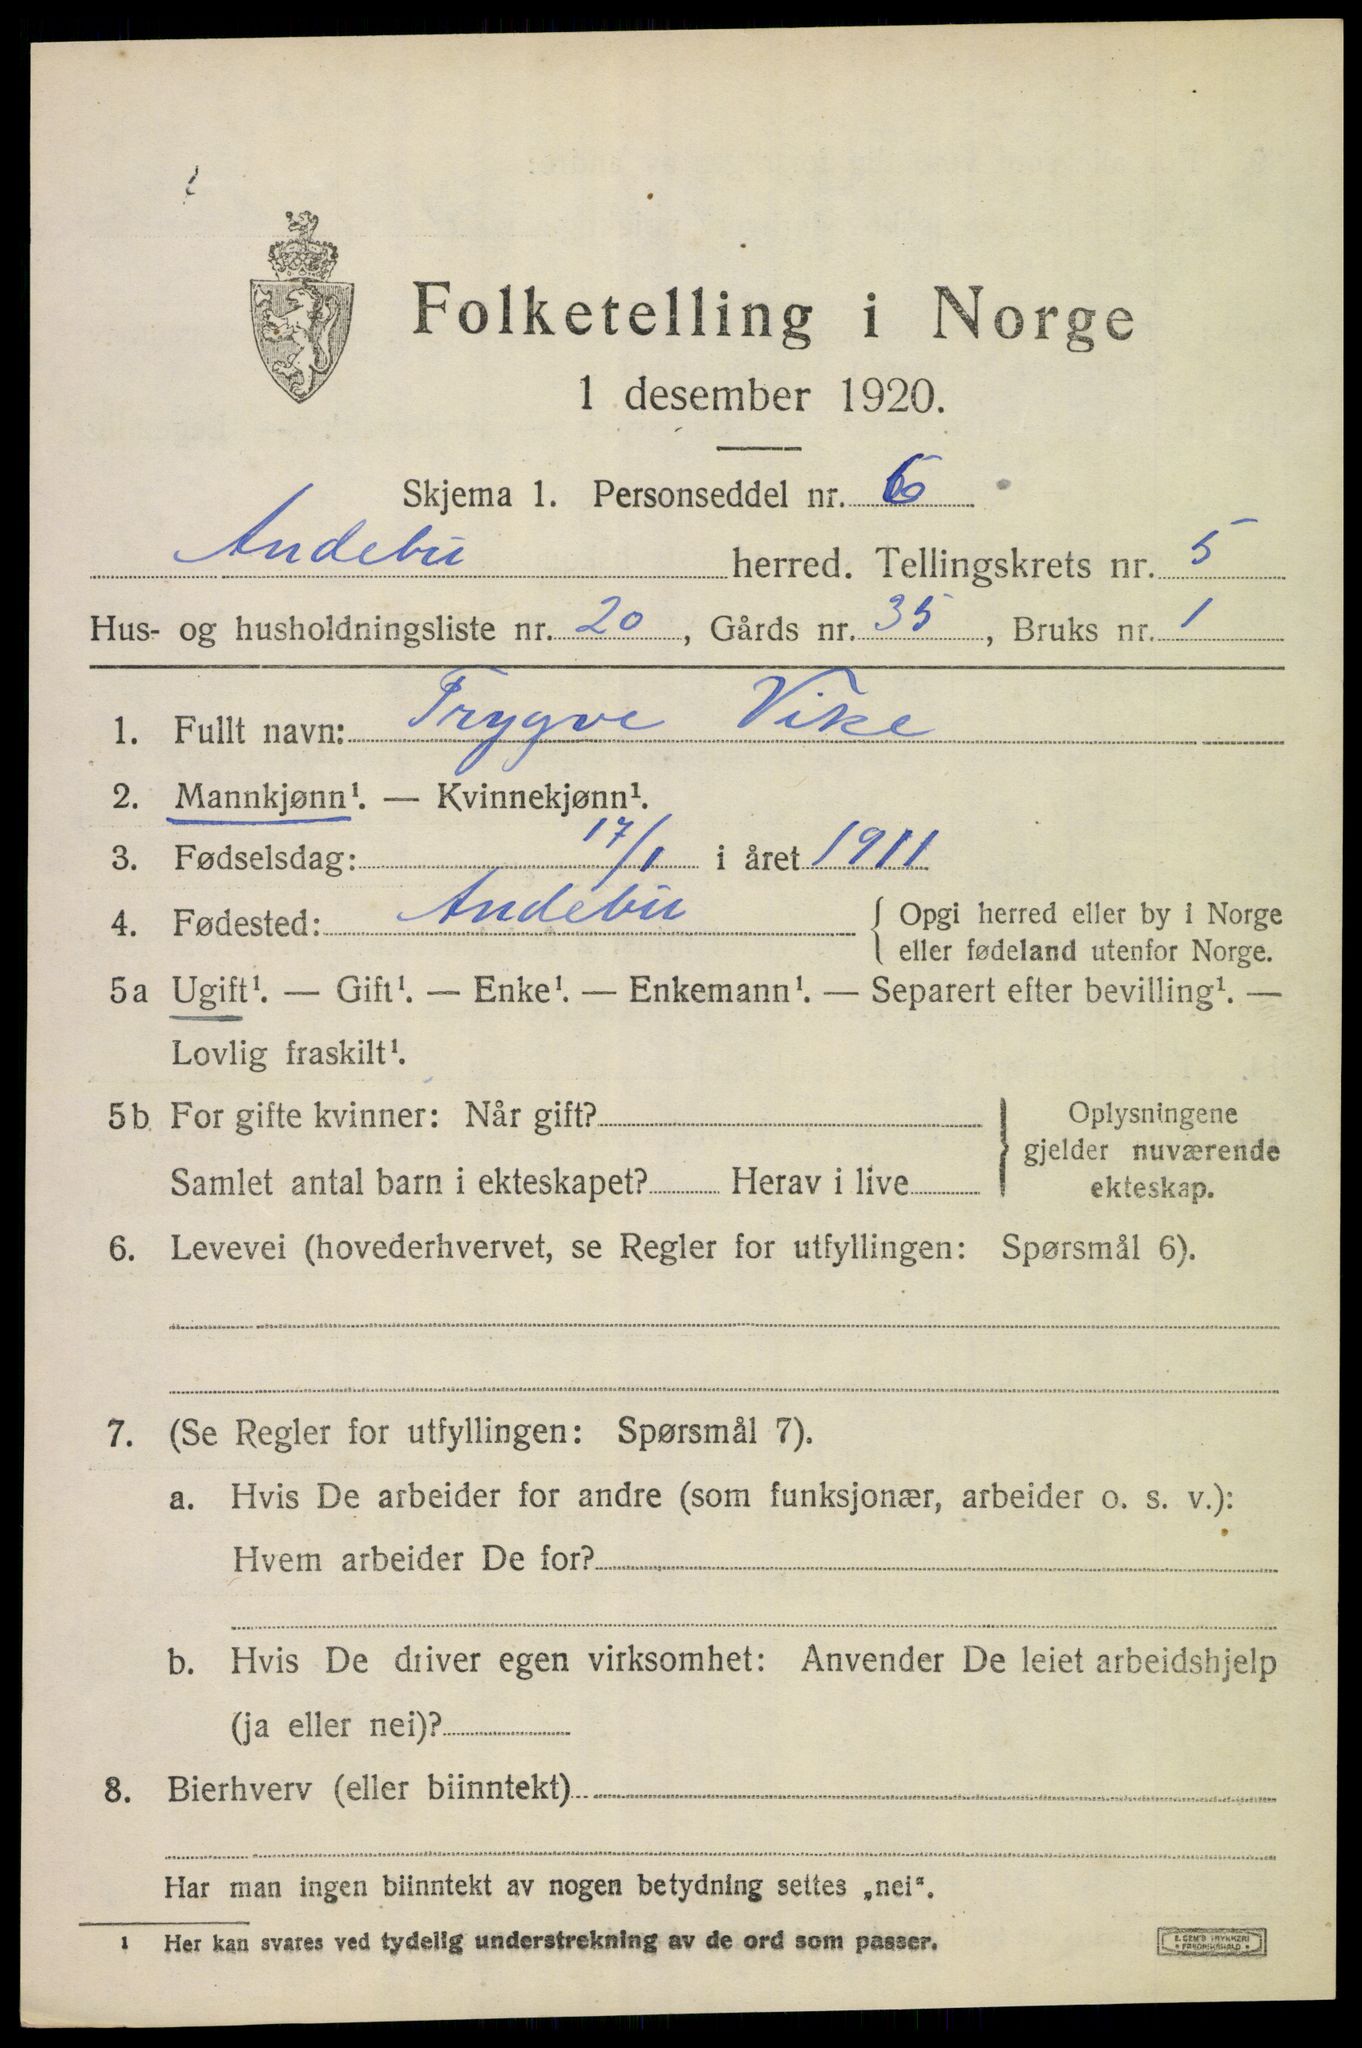 Folketelling i Norge
1 desember 1920.
Skjema 1. Personseddel nr. 6
Andebu herred. Tellingskrets nr. 5
Hus- og husholdningsliste nr. 20, Gårds nr. 35, Bruks nr. 1
1. Fullt navn: Trygve Vike
2. Mannkjønn¹. — Kvinnekjønn¹.
3. Fødselsdag: 17/1 i året 1911
4. Fødested: Andebu { Opgi herred eller by i Norge
eller fødeland utenfor Norge.
5a Ugift¹. — Gift¹. — Enke¹. — Enkemann¹. — Separert efter bevilling¹. —
Lovlig fraskilt¹.
5b For gifte kvinner: Når gift?
Samlet antal barn i ekteskapet? Herav i live
} Oplysningene
gjelder nuværende
ekteskap.
6. Levevei (hovederhvervet, se Regler for utfyllingen: Spørsmål 6).
7. (Se Regler for utfyllingen: Spørsmål 7).
a. Hvis De arbeider for andre (som funksjonær, arbeider o. s. v.):
Hvem arbeider De for?
b. Hvis De driver egen virksomhet: Anvender De leiet arbeidshjelp
(ja eller nei)?
8. Bierhverv (eller biinntekt)
Har man ingen biinntekt av nogen betydning settes „nei“.
1 Her kan svares ved tydelig understrekning av de ord som passer.
E. SEM'S TRYKKERI
• FREDRIKSHALD •